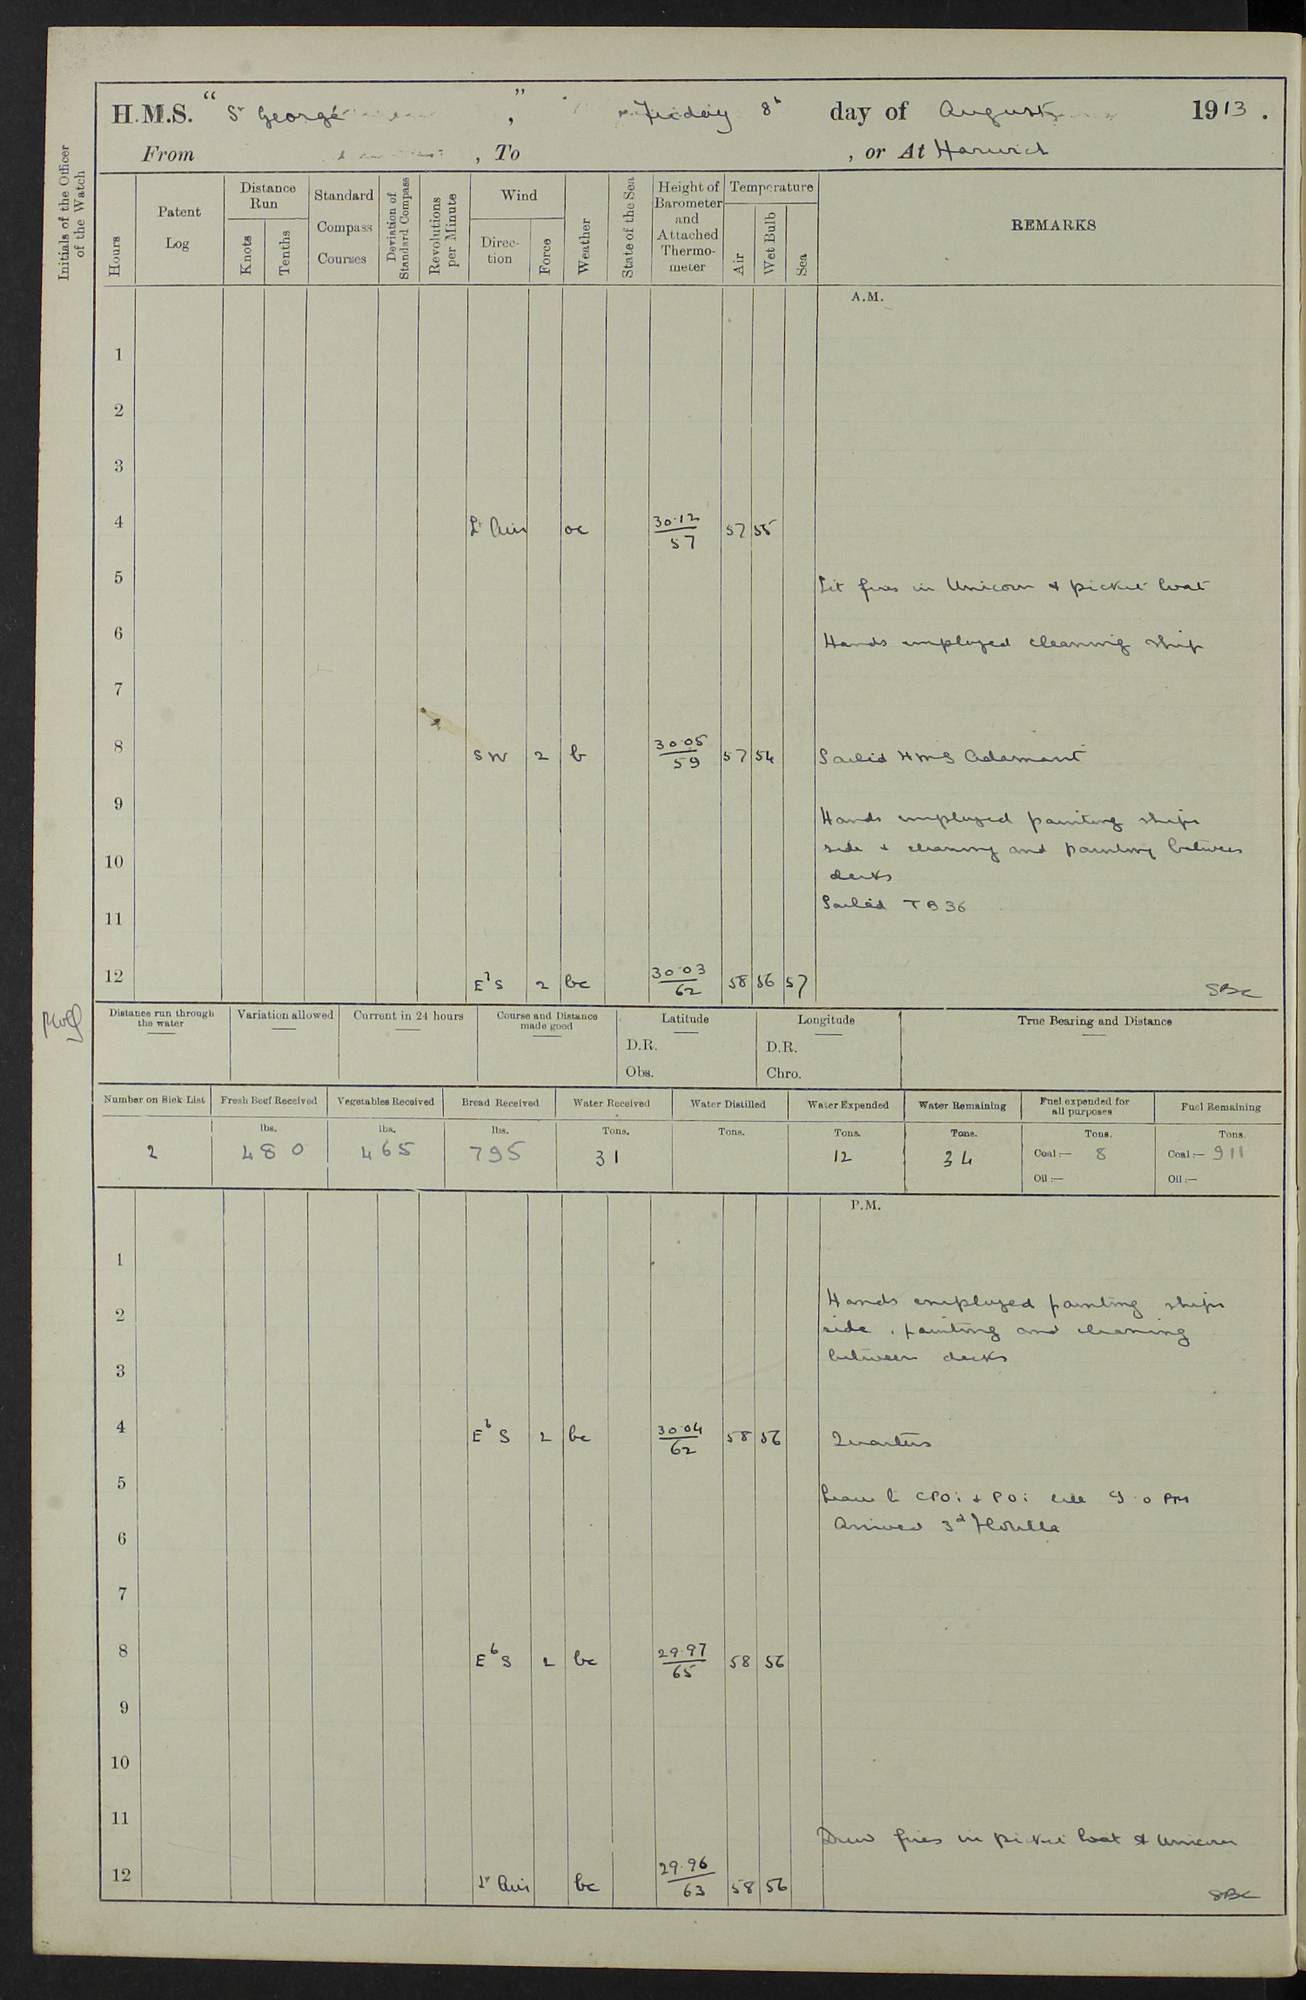 H.M.S. " St George ", Friday 8th day of August 1913.
From , To , or At Harwich
Initials of the Officer of the Watch
Hours
Patent Log
Distance Run
Knots
Tenths
Standard Compass Courses
Deviation of Standard Compass
Revolutions per Minute
Wind
Direc-tion
Force
Weather
State of the Sea
Height of Barometer and Attached Thermo-meter
Temperature
Air
Wet Bulb
Sea
REMARKS
A.M.
1
2
3
4 Lt Airs oc 30.12/57 57 55
5 Lit fires in Unicorn & picket boat
6 Hands employed cleaning ship
7
8 SW 2 b 30.05/59 57 54 Sailed HMS Adamant
9 Hands employed painting ships
side & cleaning and painting between
10
decks
Sailed TB 36
11
12 E'S 2 bc 30.03/62 58 56 57
SBC
Distance run through the water
Variation allowed
Current in 24 hours
Course and Distance made good
Latitude
D.R.
Obs.
Longitude
D.R.
Chro.
True Bearing and Distance
Number on Sick List Fresh Beef Received Vegetables Received Bread Received Water Received Water Distilled Water Expended Water Remaining Fuel expended for all purposes Fuel Remaining
lbs. lbs. lbs. Tons. Tons. Tons. Tons. Tons. Tons.
2 480 465 795 31 12 34 Coal:— 8 Coal:— 911
Oil:— Oil:—
P.M.
1
Hands employed painting ships
2
side, painting and cleaning
between decks
3
4 EbS 2 bc 30.04/62 58 56 Quarters
5
Leave to CPOs & POs till 9.0 PM
Arrived 3d Flotilla
6
7
8 EbS 2 bc 29.97/65 58 56
9
10
11
Drew fires in picket boat & Unicorn
12 Lt Airs bc 29.96/63 58 56
SBC